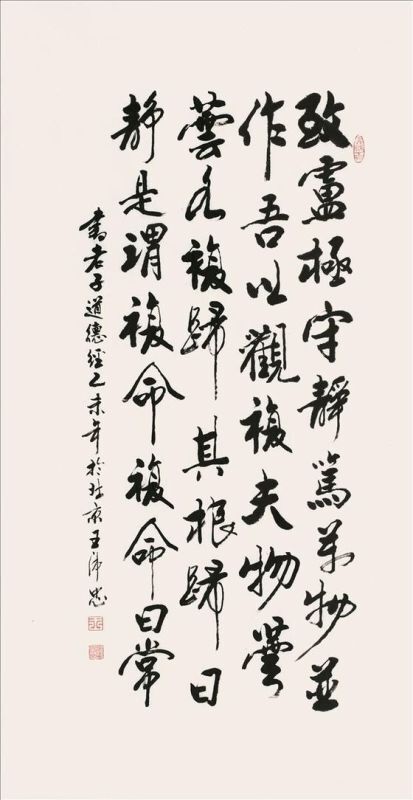 致虛極守靜篤萬物並
作吾以觀複夫物蕓
蕓各複歸其根歸曰
静是謂複命複命曰常
書老子道德經乙未年於北京王